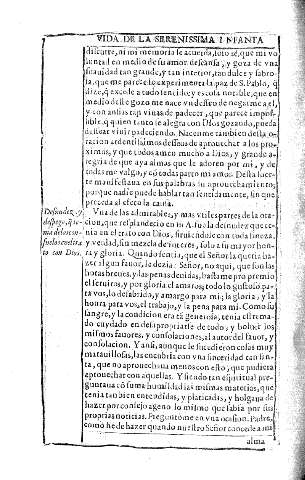 VIDA DE LA SERENISSIMA INFANTA
discurre, ni mi memoria se acuerda, solo sè, que mi vo
luntad en medio de su amor descansa, y goza de vna
suauidad tan grande, y tan interior, tan dulce y sabro-
sa, que me parece lo experimenta la paz de S. Pablo, q̃
dize, q̃ excede a todo sentido; y es cosa notable, que en
medio deste gozo me nace vn desseo de negarme a el,
y con ansias tan viuas de padecer, que parece impos-
sible, q̃ quien tanto se alegra con Dios gozando, pueda
dessear viuir padeciendo. Nacenme tambien desta o-
racion ardentissimos desseos de aprouechar a los pro-
ximos, y que todos amen mucho a Dios; y grande a-
legria de que aya almas que le adoren por mi, y de
todas me valgo, y cõ todas parto mi amor. Desta suer-
te manifestaua en sus palabras su aprouechamiento;
porque nadie puede hablar tan sentidamente, sin que
preceda al efecto la causa.
Desnudez, y
despego, q̃ te-
nia de los con-
suelos en el tra
to con Dios.
Vna de las admirables, y mas vtiles partes de la ora-
cion, que resplandecio en su A. fue la desnudez que te-
nia en el trato con Dios, siruiendole con toda fineza,
y verdad, sin mezcla de interes, solo a su mayor hon-
ra, y gloria. Quando sentia, que el Señor la queria ha-
zer algun fauor, le dezia: Señor, no aqui, que son las
horas breues, y las penas deuidas, bastame por premio
el seruiros, y por gloria el amaros; todo lo gustoso pa-
ra vos, lo desabrido, y amargo para mi; la gloria, y la
honra para vos, el trabajo, y la pena para mi. Como su
sangre, y la condicion era tã generosa, tenia estrema-
do cuydado en desapropiarse de todo, y boluer los
mismos fauores, y consolaciones, al autor del fauor, y
consolacion. Y ansi, aunque le sucedieron cosas muy
marauillosas, las encubria con vna sinceridad tan san-
ta, que no aprouechaua menos con esto, que pudiera
aprouechar con aquellas. Y siendo tan espiritual pre-
guntaua cõ suma humildad las mismas materias, que
tenia tambien entendidas, y platicadas, y holgaua de
hazer por consejo ageno lo mismo que sabia por sus
proprias noticias. Preguntòme en vna ocasion. Padre,
como he de hazer quando nuestro Señor concede a mi
alma